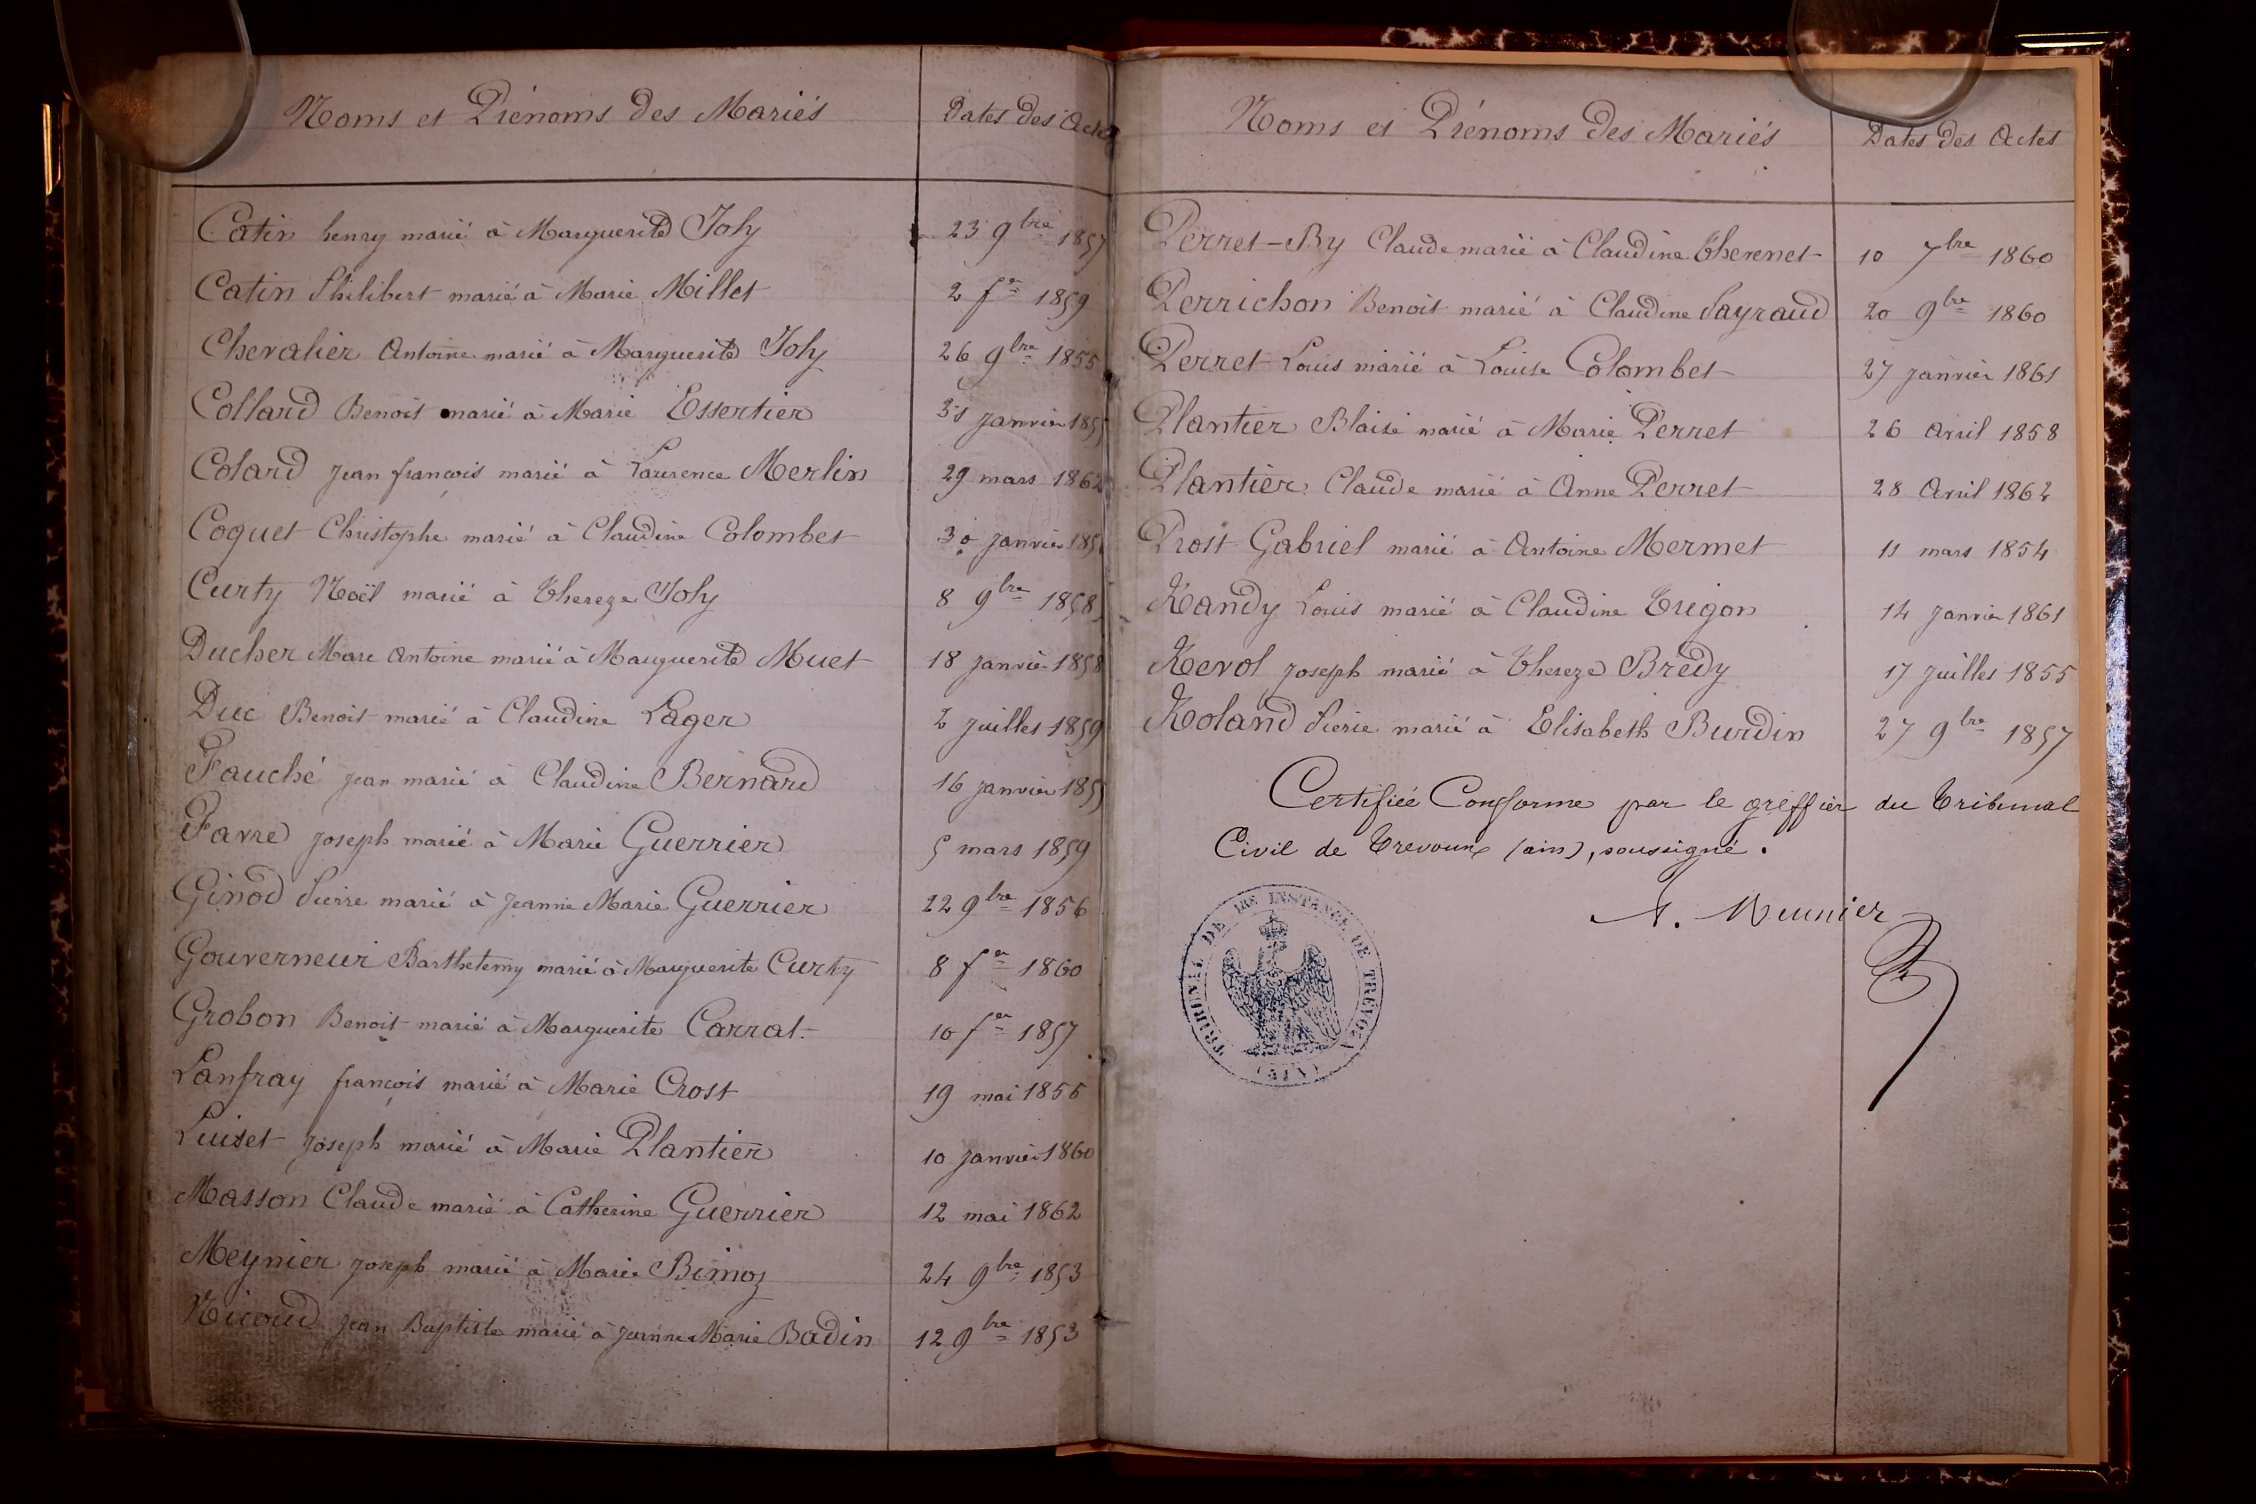 Noms et Prénoms des Mariés
Dates des Actes
Catin henry marié à Marguerite Joly 23 9bre 1857
Catin Philibert marié à Marie Millet 2 fer 1859
Chevalier Antoine marié à Marguerite Joly 26 9bre 1855
Collard Benoit marié à Marie Essertier 31 janvier 1855
Colard jean françois marié à Laurence Merlin 29 mars 1862
Coquet Christophe marié à Claudine Colombet 30 janvier
Curty Noël marié à Thereze Joly 8 9bre 1858
Ducher Marc Antoine marié à Marguerite Muet 18 janvier 1858
Duc Benoit marié à Claudine Lager 2 juillet 1859
Fauché jean marié à Claudine Bernard 16 janvier 1855
Favre joseph marié à Marie Guerrier 5 mars 1859
Ginod Pierre marié à Jeanne Marie Guerrier 22 9bre 1856
Gouverneur Barthelemy marié à Marguerite Curty 8 fer 1860
Grobon Benoit marié à Marguerite Carrat 10 fer 1857
Lanfray françois marié à Marie Crost 19 mai 1856
Luizet joseph marié à Marie Plantier 10 janvier 1860
Masson Claude marié à Catherine Guerrier 12 mai 1862
Meynier joseph marié à Marie Bimoz 24 9bre 1853
Nicoud jean Baptiste marié à jeanne Marie Badin 12 9bre 1853
Noms et Prénoms des Mariés
Dates des Actes
Perret-By Claude marié à Claudine Thevenet 10 7bre 1860
Perrichon Benoit marié à Claudine Payraud 20 9bre 1860
Perret Louis marié à Louise Colombet 27 janvier 1861
Plantier Blaise marié à Marie Perret 26 Avril 1858
Plantier Claude marié à Anne Perret 28 Avril 1862
Prost Gabriel marié à Antoine Mermet 11 mars 1854
Randy Louis marié à Claudine Trigon 14 janvier 1861
Revol joseph marié à Thereze Brédy 17 juillet 1855
Roland Pierre marié à Elisabeth Burdin 27 9bre 1857
Certifiée Conforme par le greffier du tribunal
Civil de Trevoux (ain), soussigné.
A. Meunier
TRIBUNAL DE 1RE INSTANCE DE TRÉVOUX
(AIN)